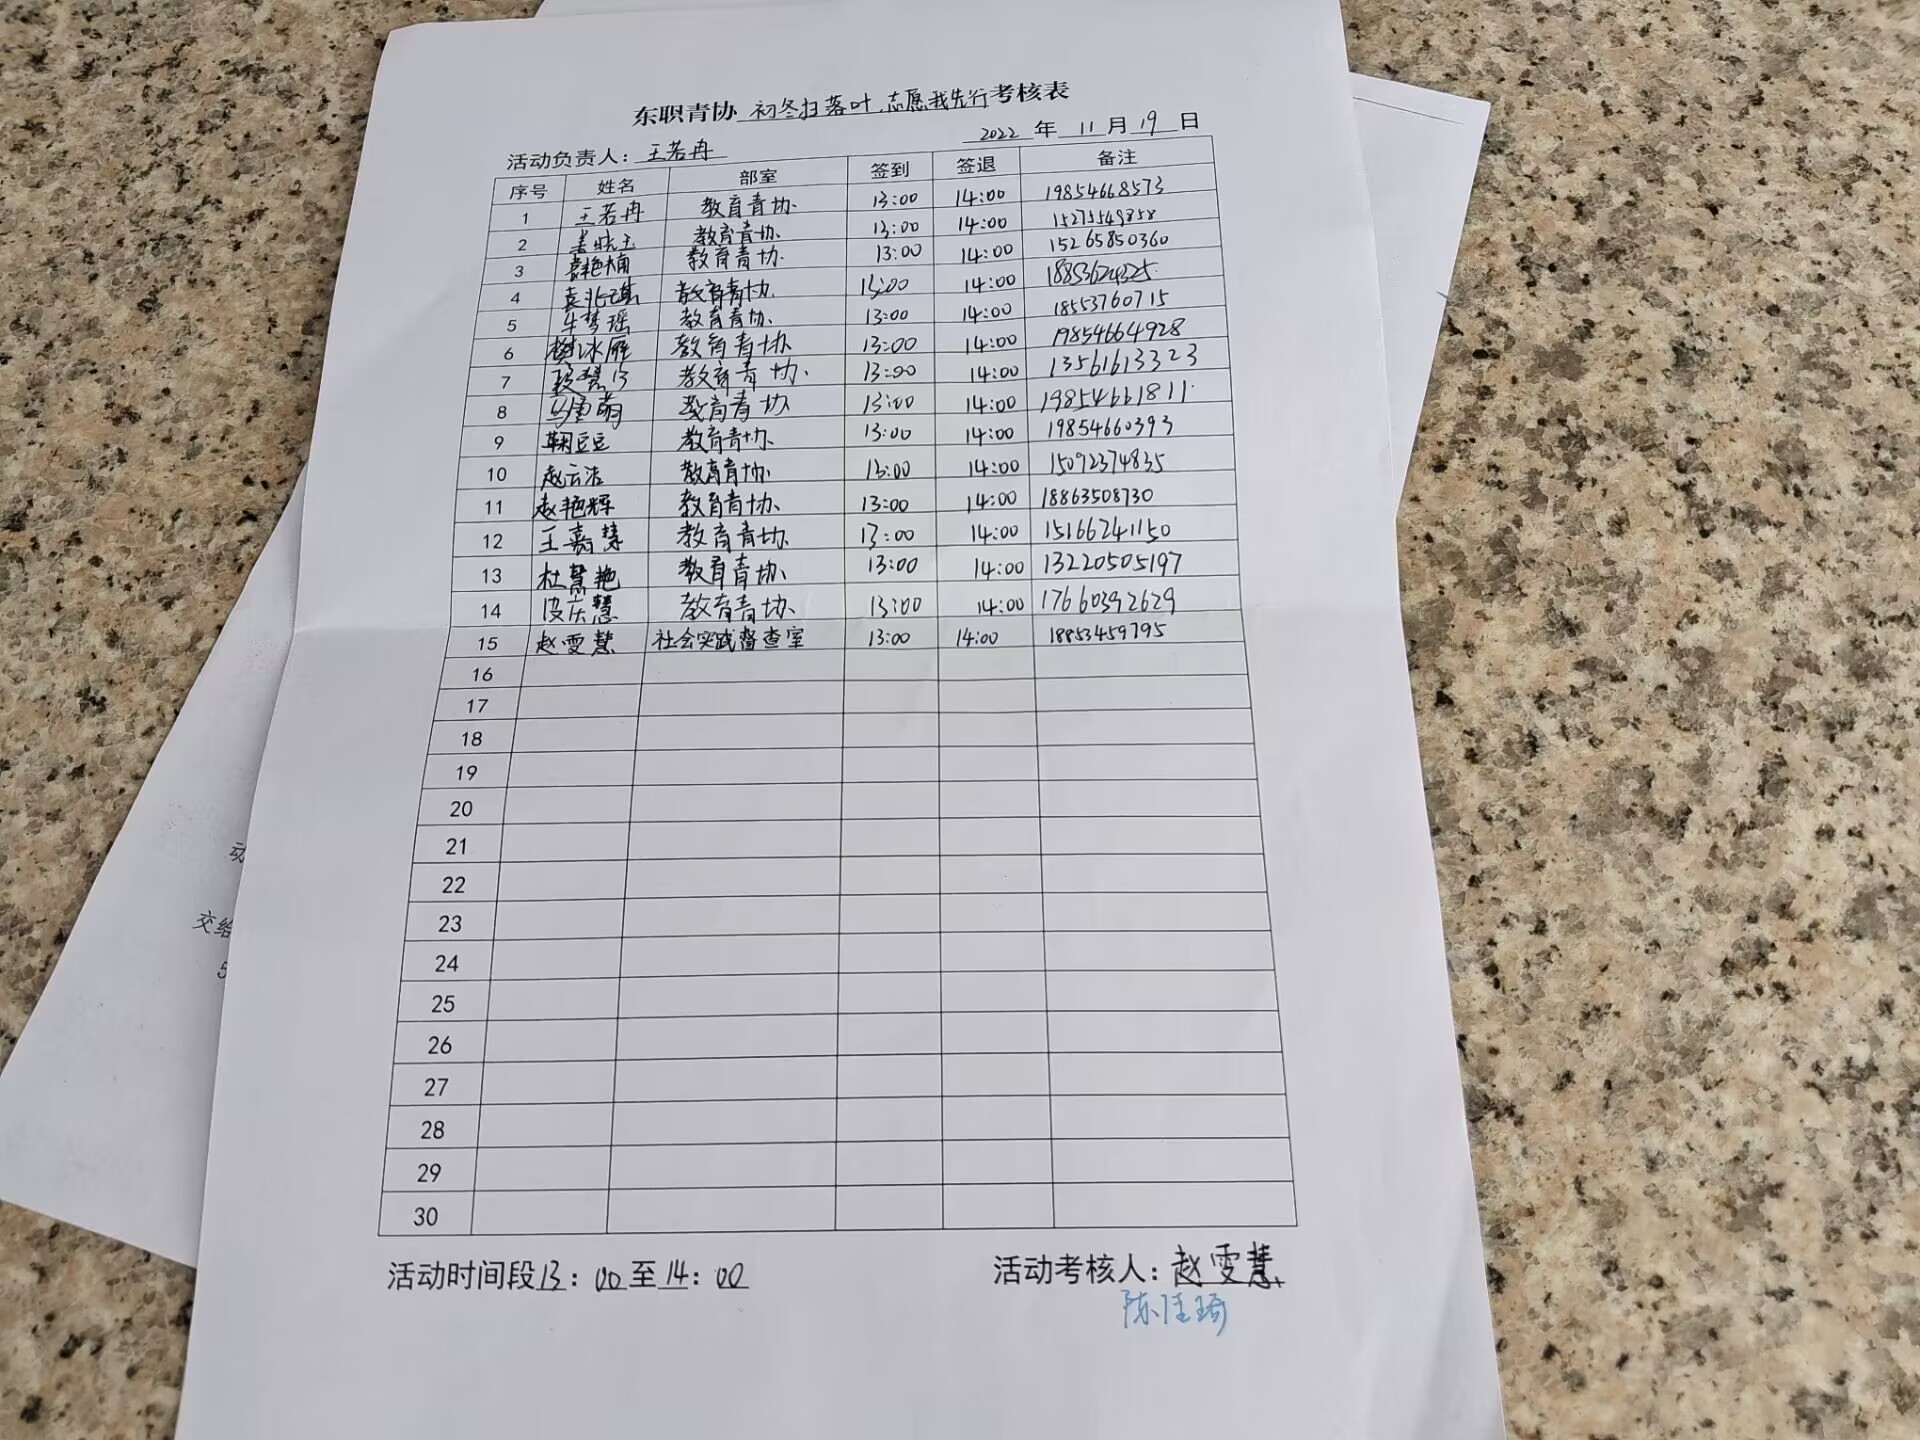 东职青协 初冬扫落叶,志愿我先行 考核表
2022 年 11 月 19 日
活动负责人：王若冉
序号 姓名 部室 签到 签退 备注
1 王若冉 教育青协 13:00 14:00 19854668573
2 姜晓玉 教育青协 13:00 14:00 15275549858
3 袁艳楠 教育青协 13:00 14:00 15265850360
4 袁兆琪 教育青协 13:00 14:00 18853624325
5 牟梦瑶 教育青协 13:00 14:00 18553760715
6 樊冰雁 教育青协 13:00 14:00 19854664928
7 教育青协 13:00 14:00 13561613323
8 教育青协 13:00 14:00 19854661811
9 鞠豆豆 教育青协 13:00 14:00 19854660393
10 赵云洁 教育青协 13:00 14:00 15092374835
11 赵艳辉 教育青协 13:00 14:00 18863508730
12 王嘉慧 教育青协 13:00 14:00 15166241150
13 杜慧艳 教育青协 13:00 14:00 13220505197
14 段庆慧 教育青协 13:00 14:00 17660392629
15 赵雯慧 社会实践督查室 13:00 14:00 18853459795
16
17
18
19
20
21
22
23
24
25
26
27
28
29
30
活动时间段 13：00 至 14：00 活动考核人：赵雯慧
陈佳琦
动
交给
5